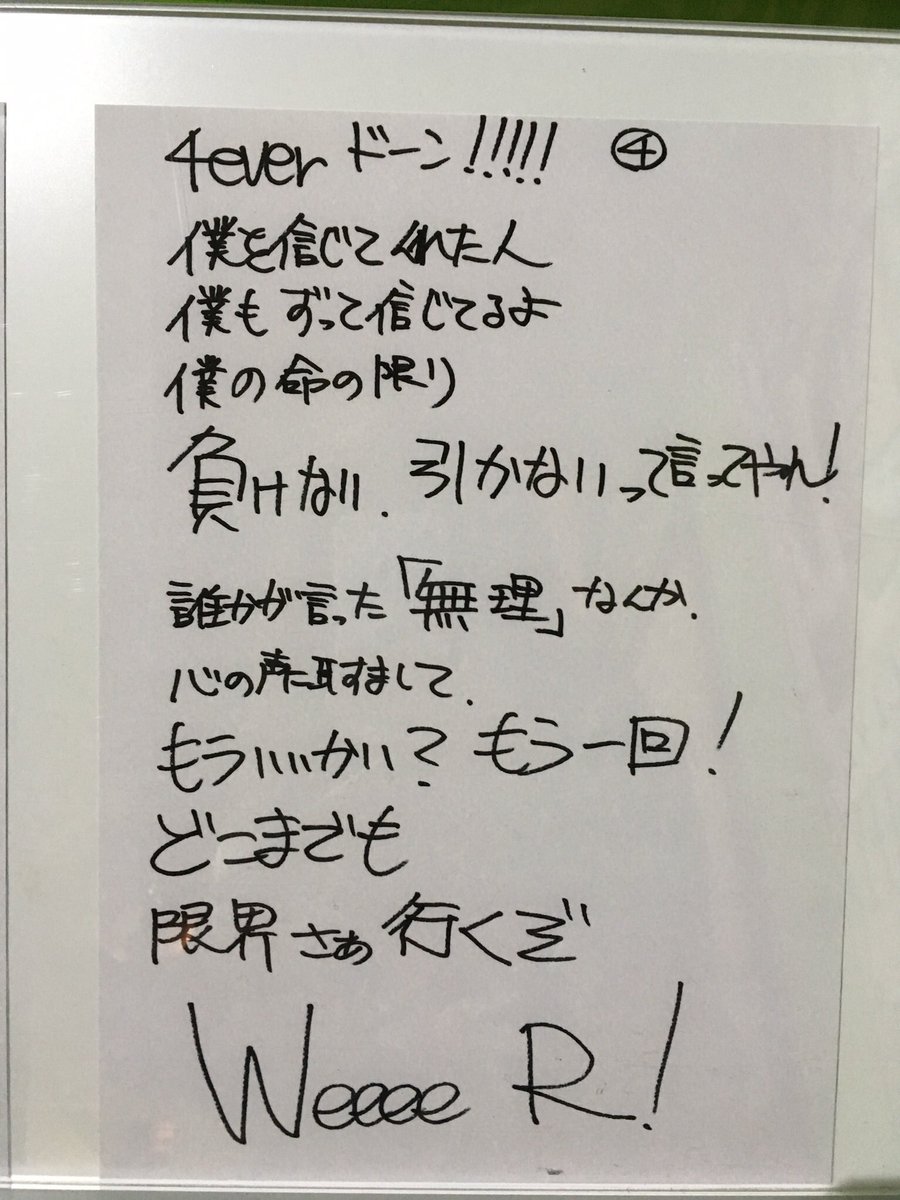 4ever ドーン!!!!! ④
僕を信じてくれた人
僕もずって信じてるよ
僕の命の限り
負けない、引かないって言ってやれ!
誰かが言った「無理」なんか、
心の声に耳すまして、
もういいかい? もう一回!
どこまでも
限界さぁ行くぞ
Weeee R!